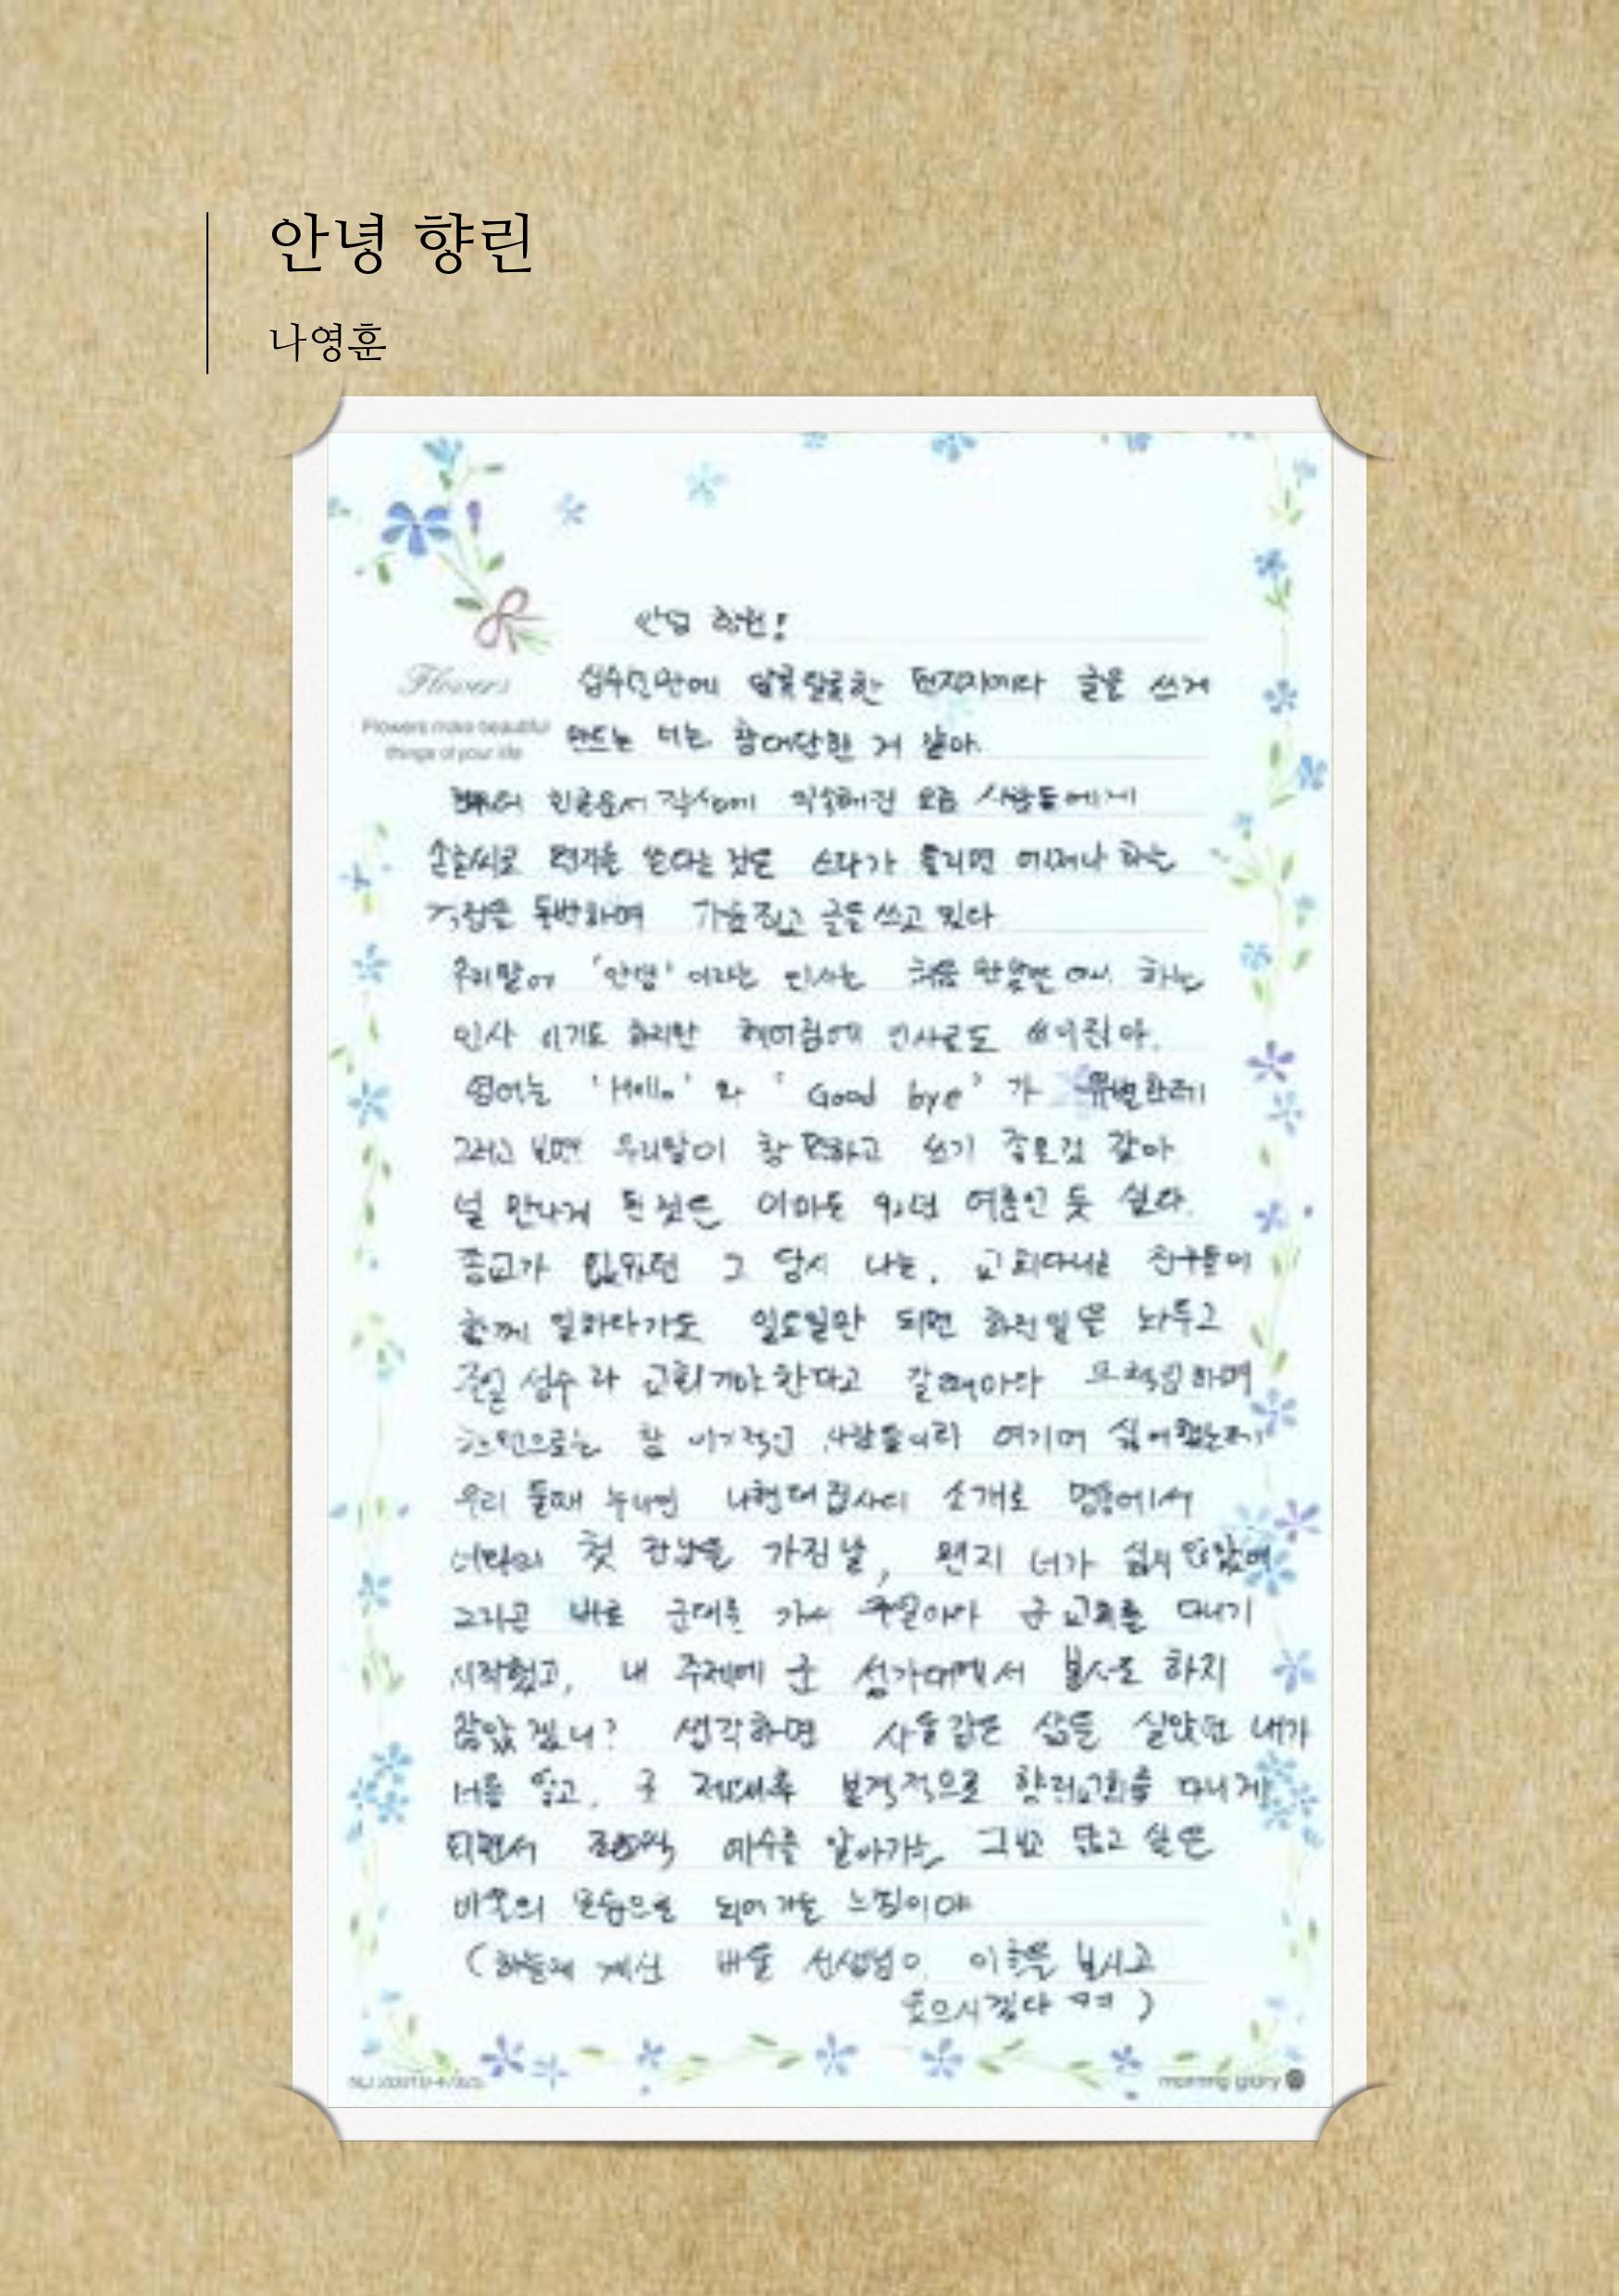 안녕 향린
나영훈
안녕 향린!
Flowers
십수년만에 알록달록한 편지지에다 글을 쓰게
Flowers make beautiful
things of your life
만드는 너는 참 대단한 거 같아.
한글문서 작성에 익숙해진 요즘 사람들에게
손글씨로 편지를 쓴다는 것은 쓰다가 틀리면 어쩌나 하는
걱정을 동반하며 가슴 졸이고 글을 쓰고 있다
우리말에 '안녕' 이라는 인사는 처음 만났을 때 하는
인사 이기도 하지만 헤어짐에 인사로도 쓰여 지잖아.
영어는 'Hello' 와 'Good bye' 가 유별한데
그러고 보면 우리말이 참 편하고 쓰기 좋은것 같아
널 만나게 된 것은 이마도 92년 여름인 듯 싶다.
종교가 없었던 그 당시 나는, 교회다니는 친구들이
함께 일하다가도 일요일만 되면 하던일을 놔두고
주일 성수 라 교회가야 한다고 갈때마다 무책임하며
참 이기적인 사람들이라 여기며 싫어했는데
우리 둘째 누나인 나현대 집사의 소개로 명동에서
너와의 첫 만남을 가진 날, 왠지 너가 싫지 않았어
그리곤 바로 군대를 가서 주일마다 군 교회를 다니기
시작했고, 내 주제에 군 성가대에서 봉사도 하지
않았겠니? 생각하면 사울같은 삶을 살았던 내가
너를 알고, 군 제대후 본격적으로 향린교회를 다니게
되면서 조금씩 예수를 알아가는, 그리고 닮고 싶은
바울의 모습으로 되어 가는 느낌이야
(하늘에 계신 바울 선생님이 이글을 보시고
웃으시겠다 ㅋㅋ )
morning glory